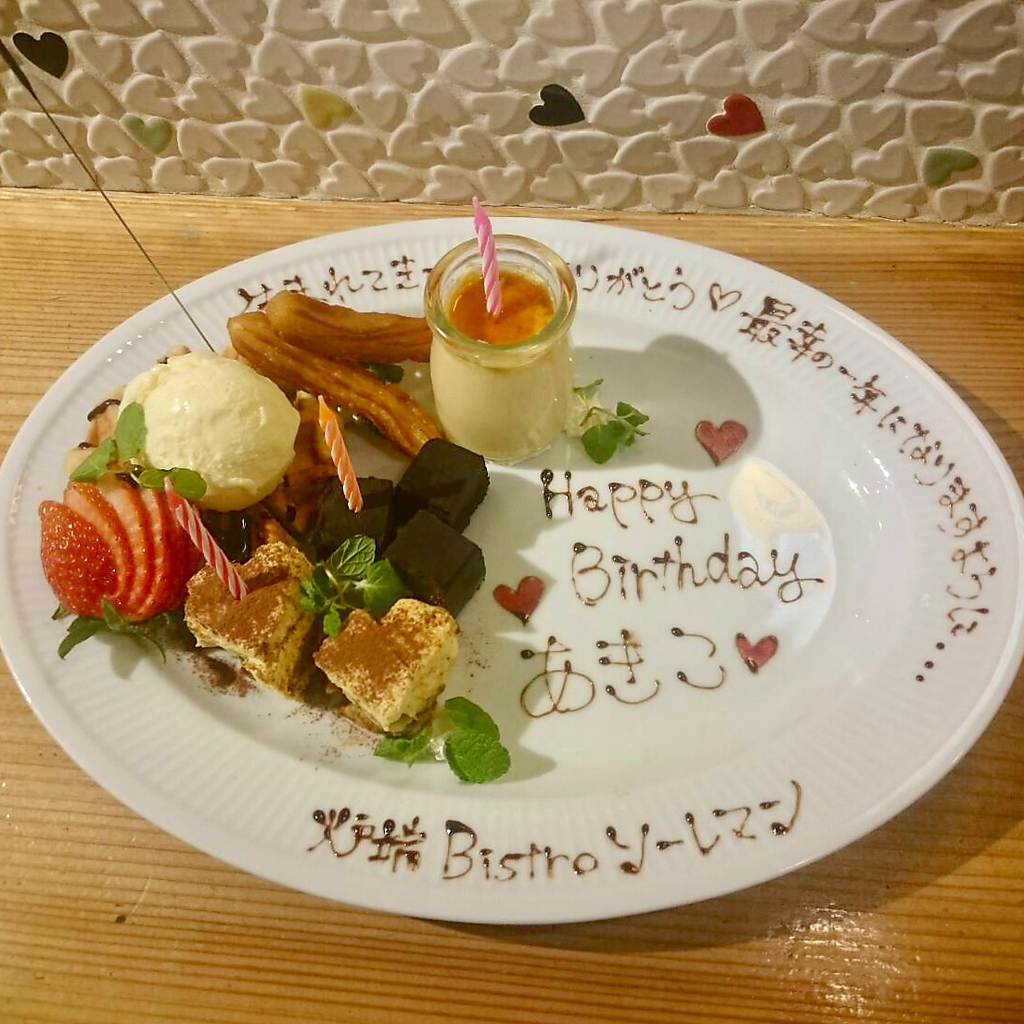 生まれてき りがとう♡ 最幸の一年になりますように……
Happy
Birthday
あきこ
炉端 Bistro ソーレマン